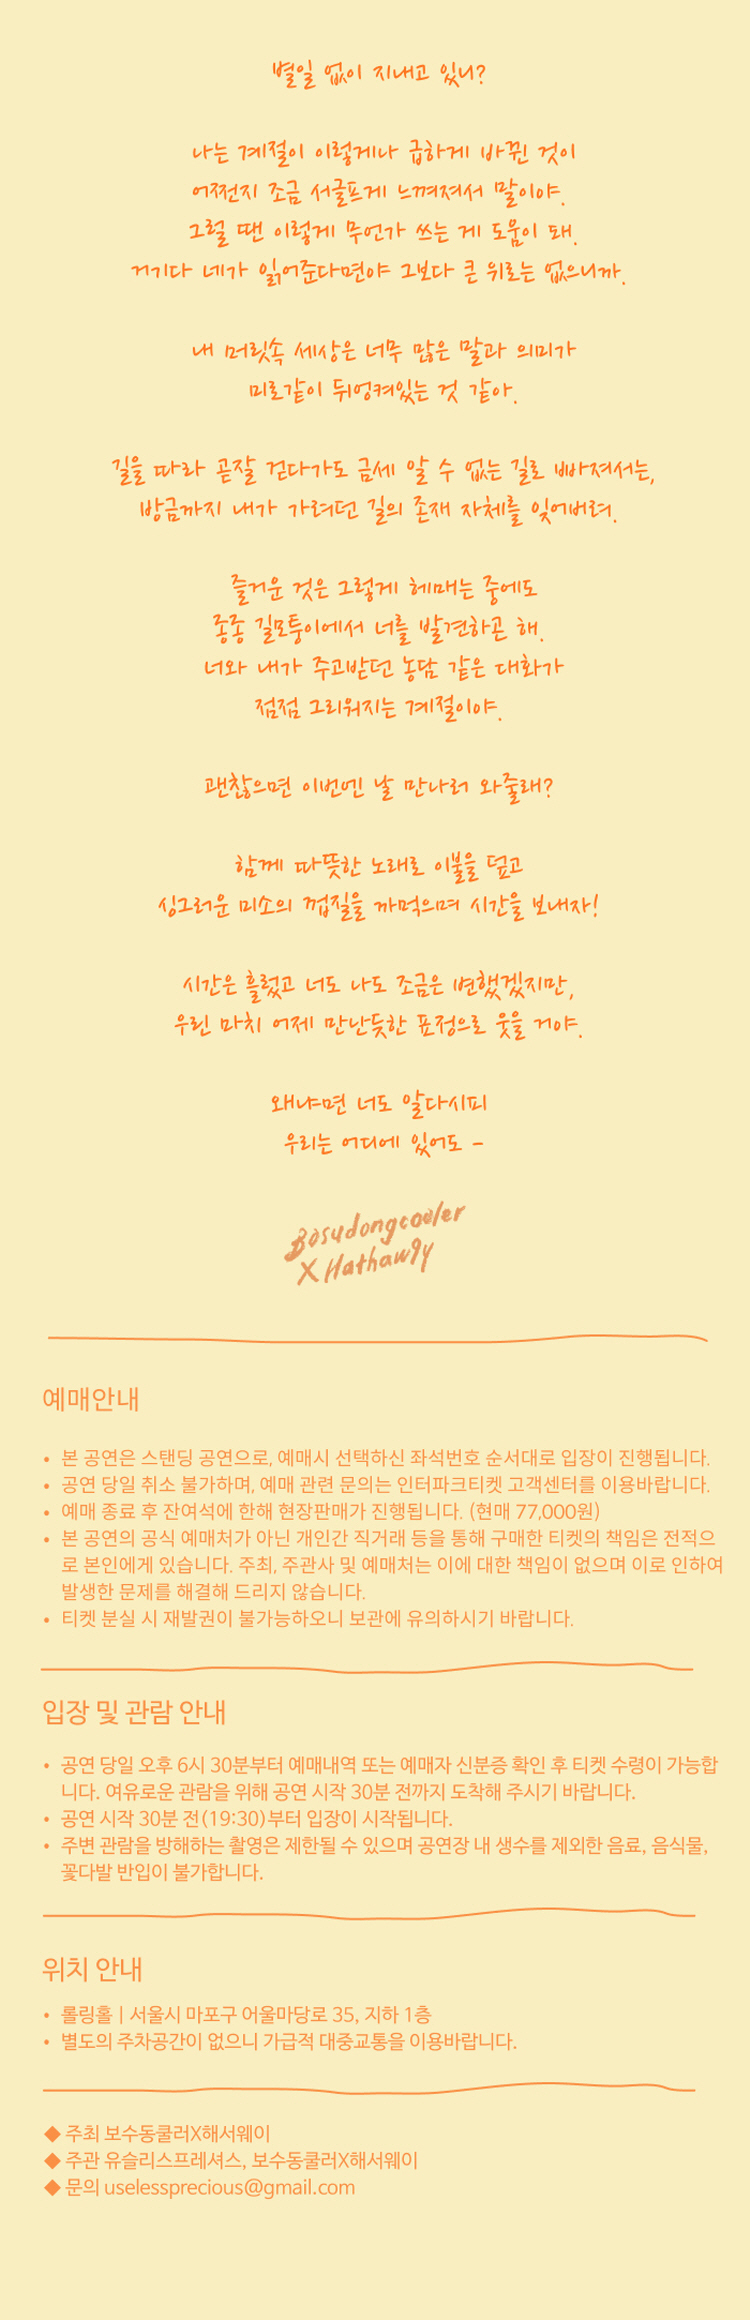 별일 없이 지내고 있니?
나는 계절이 이렇게나 급하게 바뀐 것이
어쩐지 조금 서글프게 느껴져서 말이야.
그럴 땐 이렇게 무언가 쓰는 게 도움이 돼.
거기다 네가 읽어준다면야 그보다 큰 위로는 없으니까.
내 머릿속 세상은 너무 많은 말과 의미가
미로같이 뒤엉켜있는 것 같아.
길을 따라 곧잘 걷다가도 금세 알 수 없는 길로 빠져서는,
방금까지 내가 가려던 길의 존재 자체를 잊어버려.
즐거운 것은 그렇게 헤매는 중에도
종종 길모퉁이에서 너를 발견하곤 해.
너와 내가 주고받던 농담 같은 대화가
점점 그리워지는 계절이야.
괜찮으면 이번엔 날 만나러 와줄래?
함께 따뜻한 노래로 이불을 덮고
싱그러운 미소의 껍질을 까먹으며 시간을 보내자!
시간은 흘렀고 너도 나도 조금은 변했겠지만,
우린 마치 어제 만난듯한 표정으로 웃을 거야.
왜냐면 너도 알다시피
우리는 어디에 있어도 -
Bosudongcooler
X Hathaw9y
예매안내
• 본 공연은 스탠딩 공연으로, 예매시 선택하신 좌석번호 순서대로 입장이 진행됩니다.
• 공연 당일 취소 불가하며, 예매 관련 문의는 인터파크티켓 고객센터를 이용바랍니다.
• 예매 종료 후 잔여석에 한해 현장판매가 진행됩니다. (현매 77,000원)
• 본 공연의 공식 예매처가 아닌 개인간 직거래 등을 통해 구매한 티켓의 책임은 전적으
로 본인에게 있습니다. 주최, 주관사 및 예매처는 이에 대한 책임이 없으며 이로 인하여
발생한 문제를 해결해 드리지 않습니다.
• 티켓 분실 시 재발권이 불가능하오니 보관에 유의하시기 바랍니다.
입장 및 관람 안내
• 공연 당일 오후 6시 30분부터 예매내역 또는 예매자 신분증 확인 후 티켓 수령이 가능합
니다. 여유로운 관람을 위해 공연 시작 30분 전까지 도착해 주시기 바랍니다.
• 공연 시작 30분 전(19:30)부터 입장이 시작됩니다.
• 주변 관람을 방해하는 촬영은 제한될 수 있으며 공연장 내 생수를 제외한 음료, 음식물,
꽃다발 반입이 불가합니다.
위치 안내
• 롤링홀 | 서울시 마포구 어울마당로 35, 지하 1층
• 별도의 주차공간이 없으니 가급적 대중교통을 이용바랍니다.
◆ 주최 보수동쿨러X해서웨이
◆ 주관 유슬리스프레셔스, 보수동쿨러X해서웨이
◆ 문의 uselessprecious@gmail.com